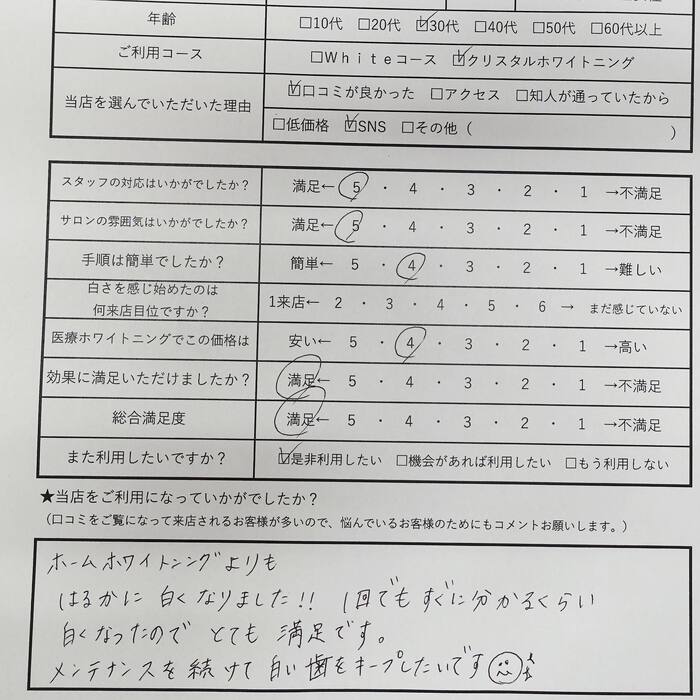 年齢 □10代 □20代 ☑30代 □40代 □50代 □60代以上
ご利用コース □Whiteコース ☑クリスタルホワイトニング
当店を選んでいただいた理由 ☑口コミが良かった □アクセス □知人が通っていたから
□低価格 ☑SNS □その他（ ）
スタッフの対応はいかがでしたか？ 満足← 5 ・ 4 ・ 3 ・ 2 ・ 1 →不満足
サロンの雰囲気はいかがでしたか？ 満足← 5 ・ 4 ・ 3 ・ 2 ・ 1 →不満足
手順は簡単でしたか？ 簡単← 5 ・ 4 ・ 3 ・ 2 ・ 1 →難しい
白さを感じ始めたのは
何来店目位ですか？ 1来店← 2 ・ 3 ・ 4 ・ 5 ・ 6 → まだ感じていない
医療ホワイトニングでこの価格は 安い← 5 ・ 4 ・ 3 ・ 2 ・ 1 →高い
効果に満足いただけましたか？ 満足← 5 ・ 4 ・ 3 ・ 2 ・ 1 →不満足
総合満足度 満足← 5 ・ 4 ・ 3 ・ 2 ・ 1 →不満足
また利用したいですか？ ☑是非利用したい □機会があれば利用したい □もう利用しない
★当店をご利用になっていかがでしたか？
（口コミをご覧になって来店されるお客様が多いので、悩んでいるお客様のためにもコメントお願いします。）
ホームホワイトニングよりも
はるかに白くなりました!! 1回でもすぐに分かるくらい
白くなったのでとても満足です。
メンテナンスを続けて白い歯をキープしたいです